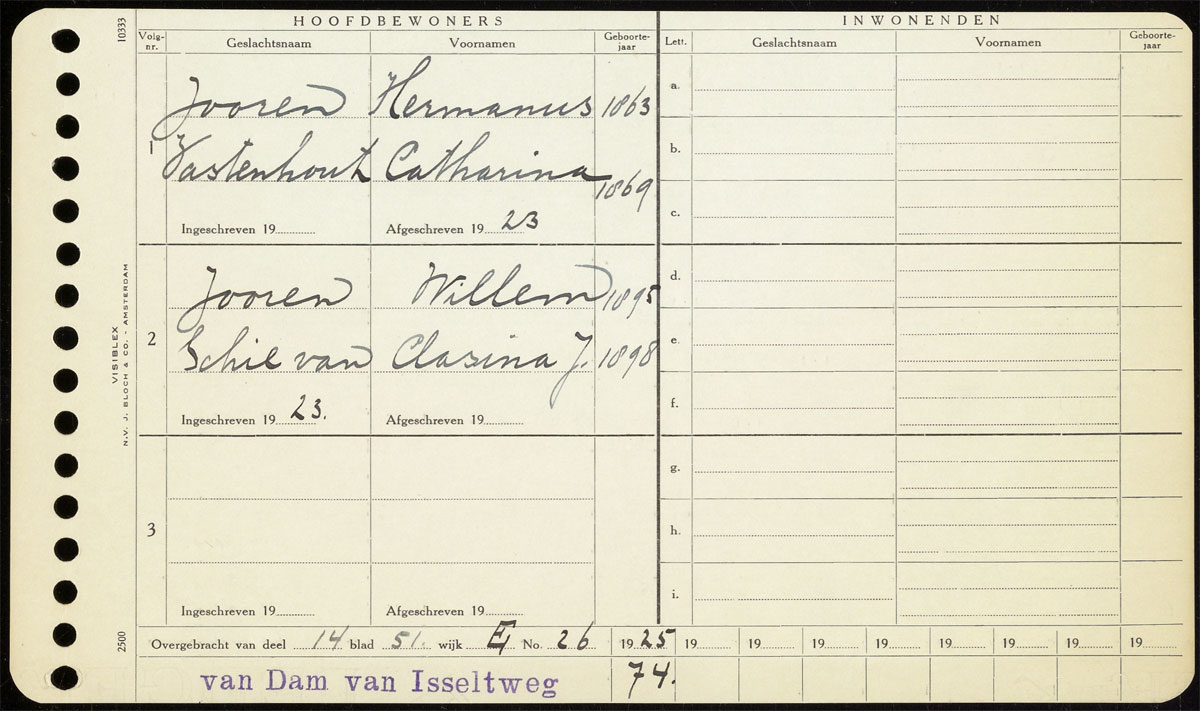 10333
HOOFDBEWONERS INWONENDEN
Volg-nr. Geslachtsnaam Voornamen Geboorte-jaar Lett. Geslachtsnaam Voornamen Geboorte-jaar
Jooren Hermanus 1863 a.
1 Vastenhout Catharina 1869 b.
Ingeschreven 19 Afgeschreven 19 23 c.
Jooren Willem 1895 d.
2 Schie van Clasina J. 1898 e.
Ingeschreven 19 23. Afgeschreven 19 f.
g.
3 h.
Ingeschreven 19 Afgeschreven 19 i.
Overgebracht van deel 14 blad 51. wijk E No. 26 19 25 19 19 19 19 19 19 19 19
van Dam van Isseltweg 74.
VISIBLEX
N.V. J. BLOCH & CO. - AMSTERDAM
2500